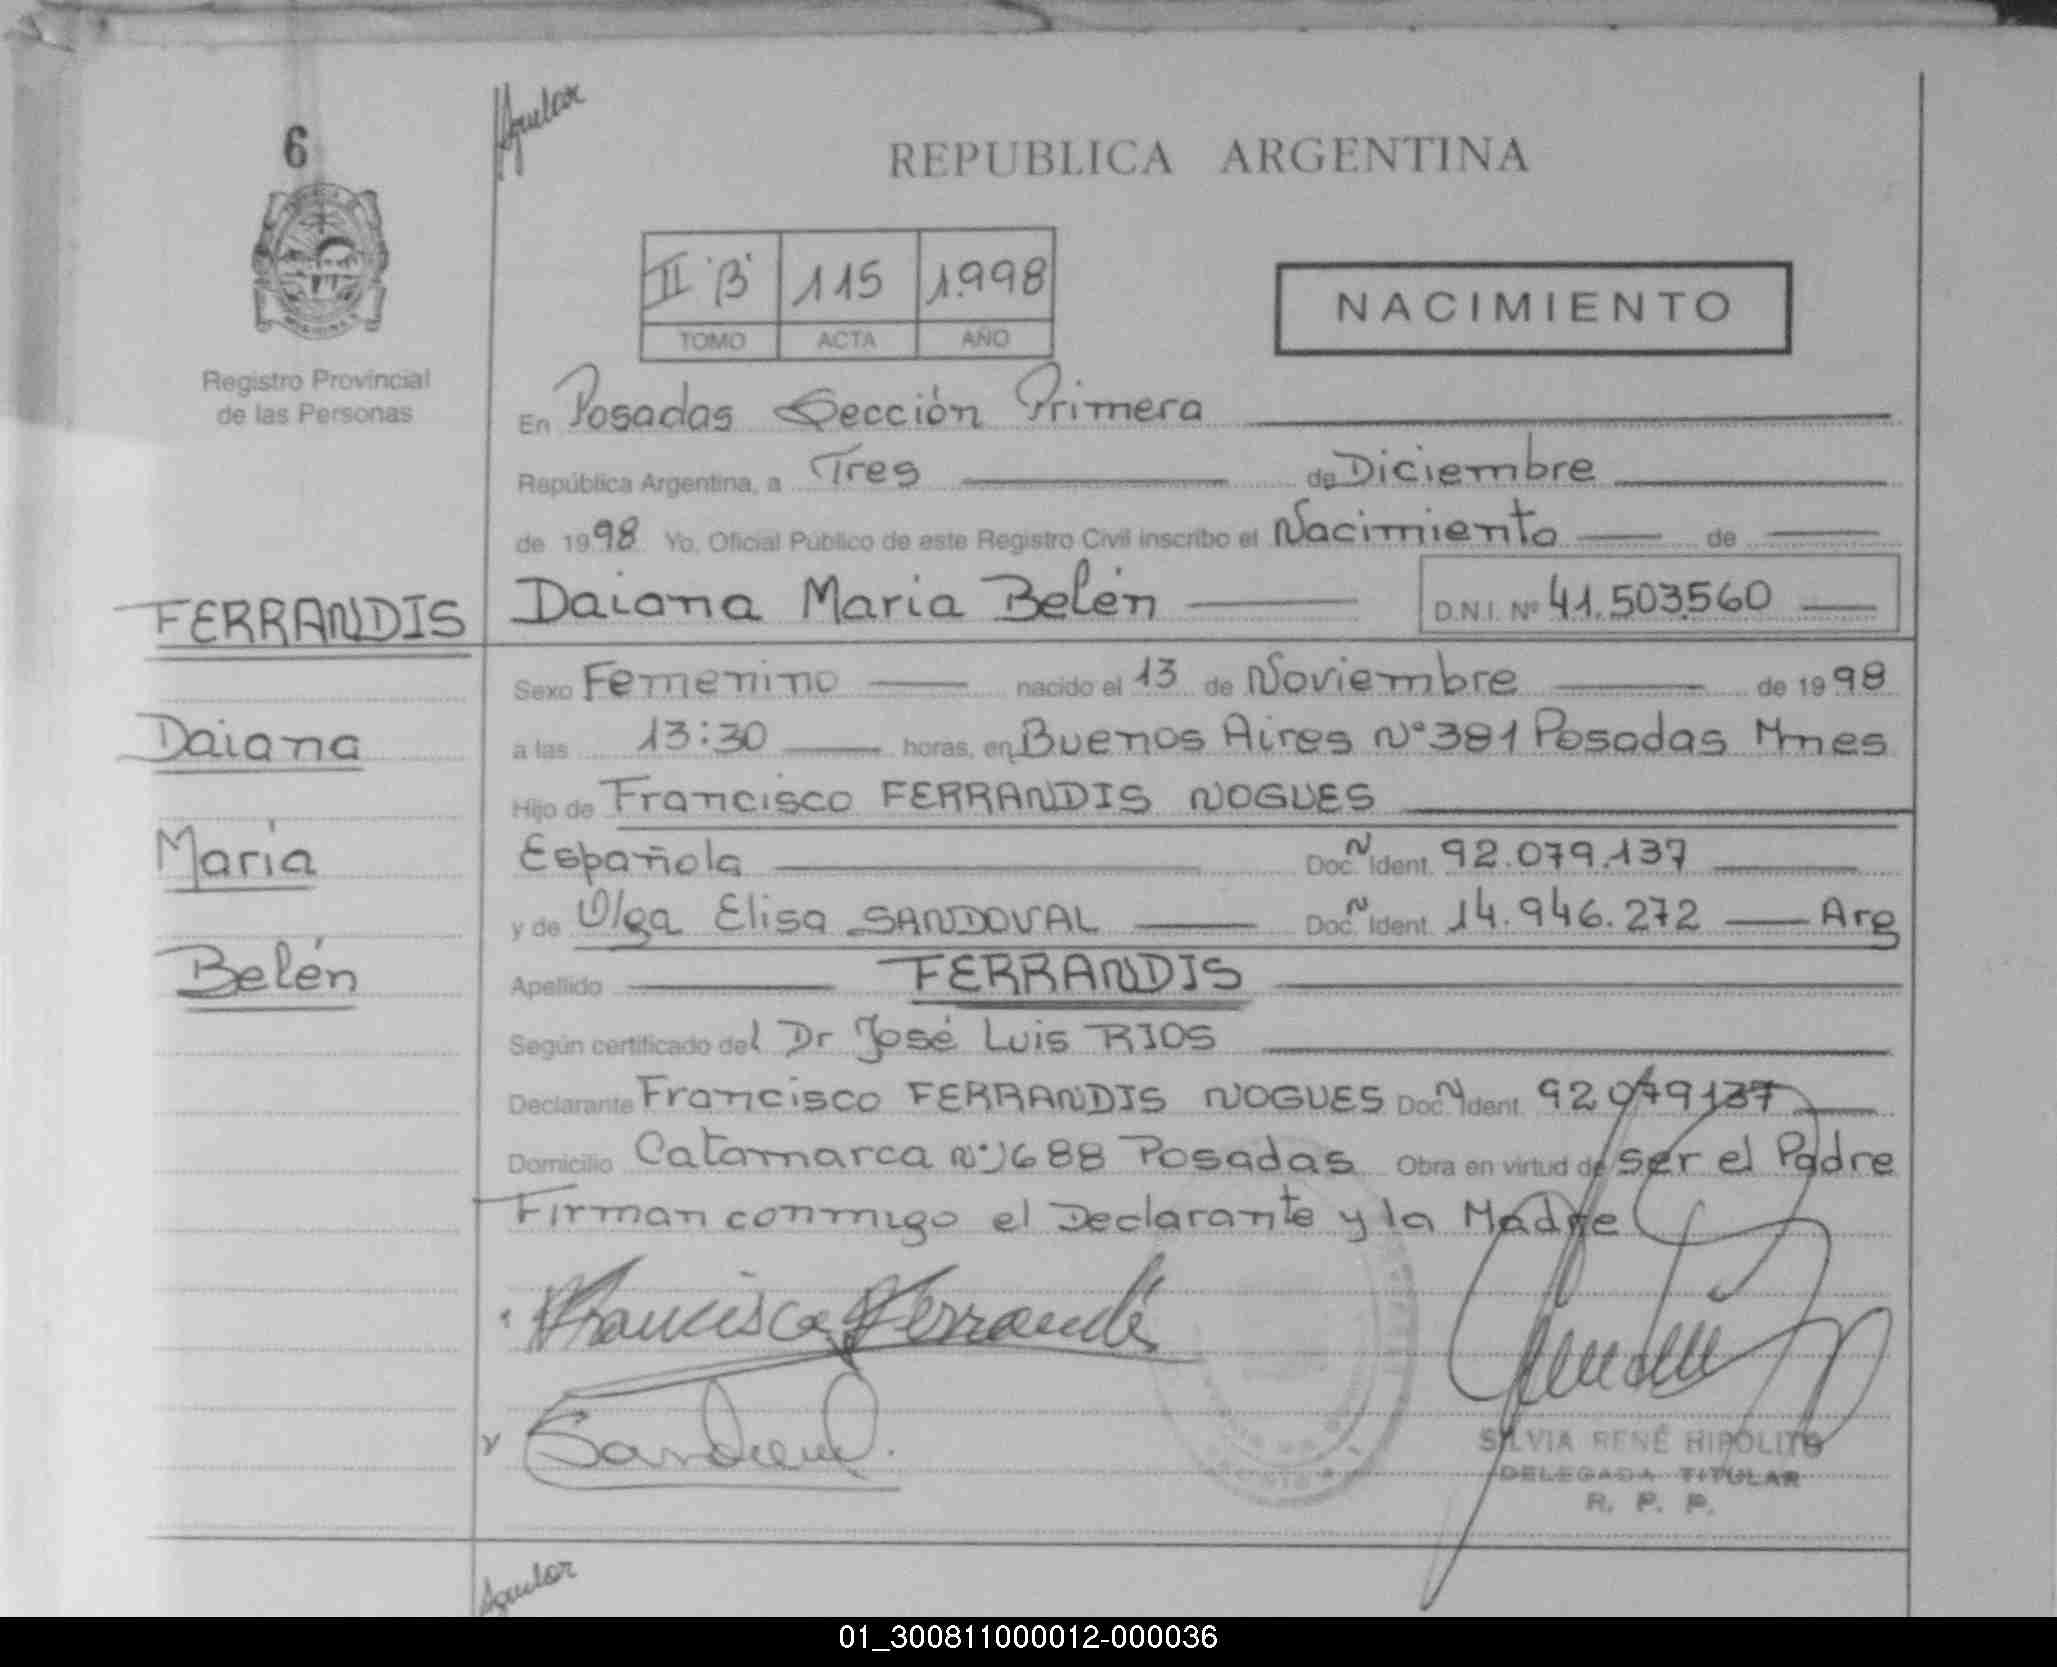 6
Aguilar
REPUBLICA ARGENTINA
II "B" 115 1.998
TOMO ACTA AÑO
NACIMIENTO
Registro Provincial
de las Personas
En Posadas Sección Primera
República Argentina, a Tres de Diciembre
de 1998 Yo, Oficial Público de este Registro Civil inscribo el Nacimiento de
FERRANDIS Daiana Maria Belén D.N.I. Nº 41.503.560
Sexo Femenino nacido el 13 de Noviembre de 1998
Daiana a las 13:30 horas, en Buenos Aires Nº 381 Posadas Mnes
Hijo de Francisco FERRANDIS NOGUES
María Española Doc. N Ident. 92.079.137
y de Olga Elisa SANDOVAL Doc. N Ident. 14.946.272 Arg
Belén Apellido FERRANDIS
Según certificado del Dr José Luis RIOS
Declarante Francisco FERRANDIS NOGUES Doc. N Ident. 92079137
Domicilio Catamarca Nº 1688 Posadas Obra en virtud de ser el Padre
Firman conmigo el Declarante y la Madre
Francisco Ferrandis
Sandoval
SILVIA RENÉ HIPOLITO
DELEGADA TITULAR
R. P. P.
Aguilar
01_300811000012-000036